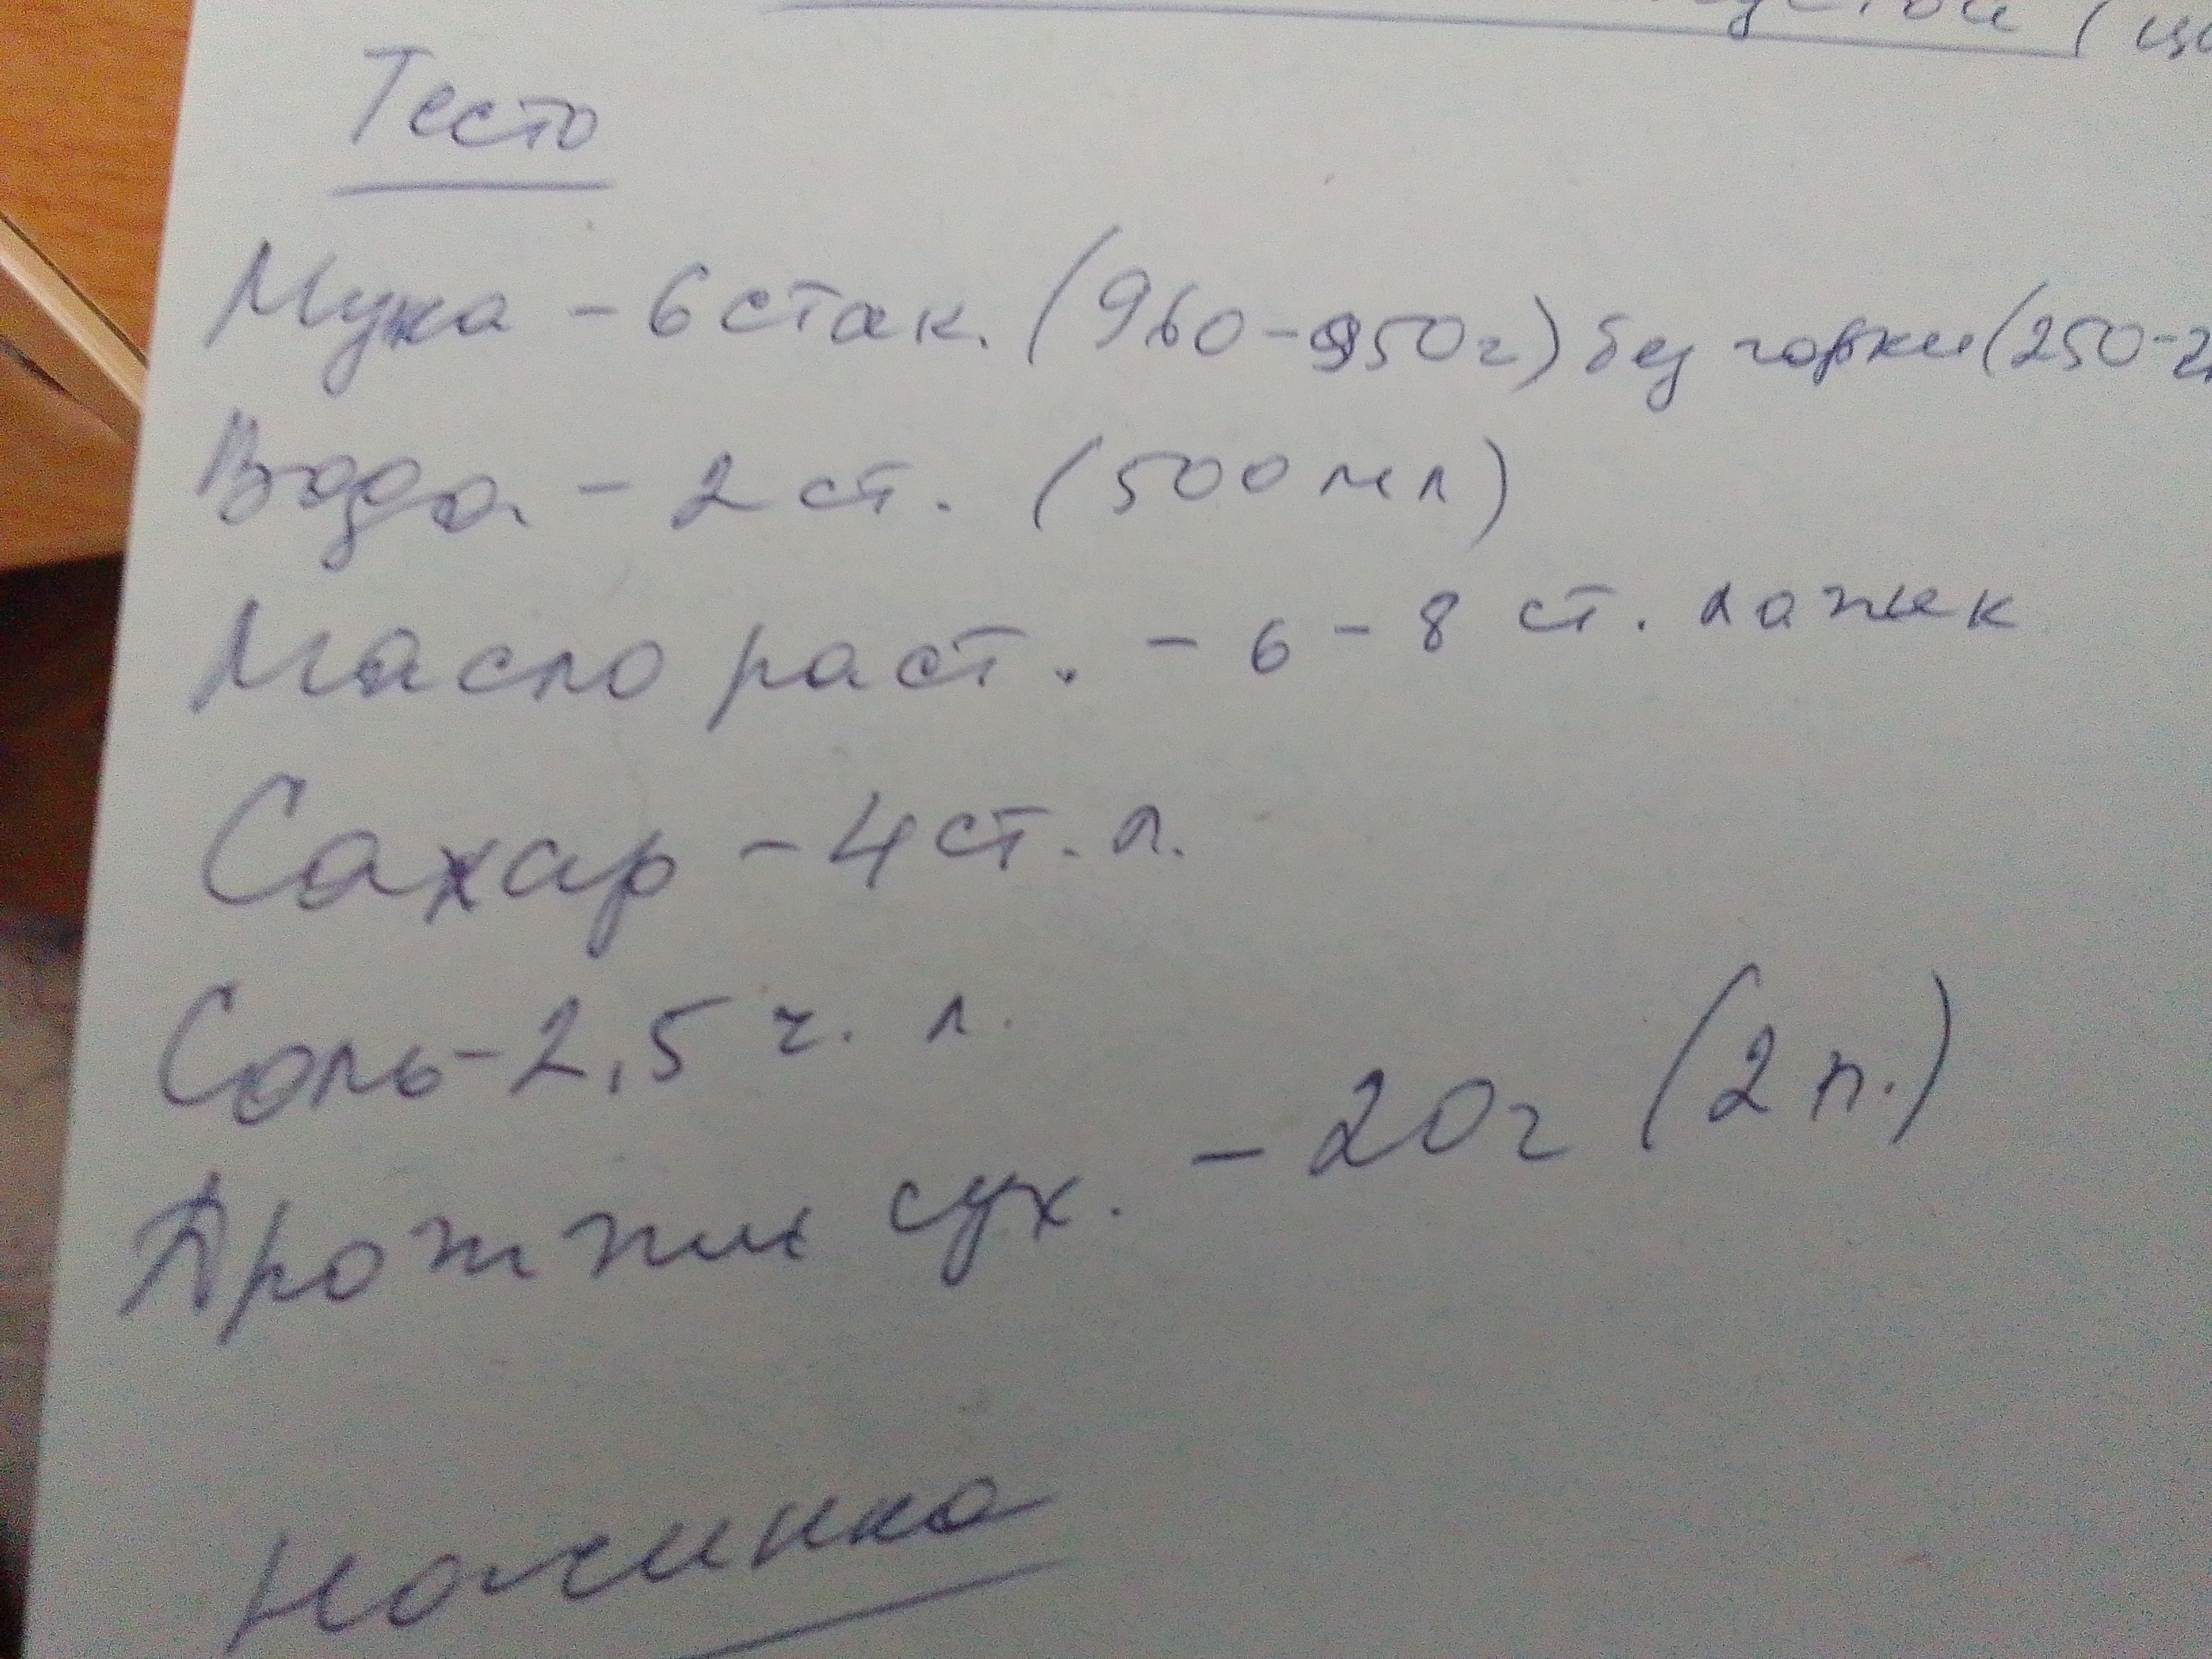 Тесто
Мука - 6 стак. (960-950г) без горки (250-2
Вода - 2 ст. (500 мл)
Масло раст. - 6 - 8 ст. ложек
Сахар - 4 ст. л.
Соль - 2,5 ч. л.
Дрожжи сух. - 20г (2 п.)
Начинка